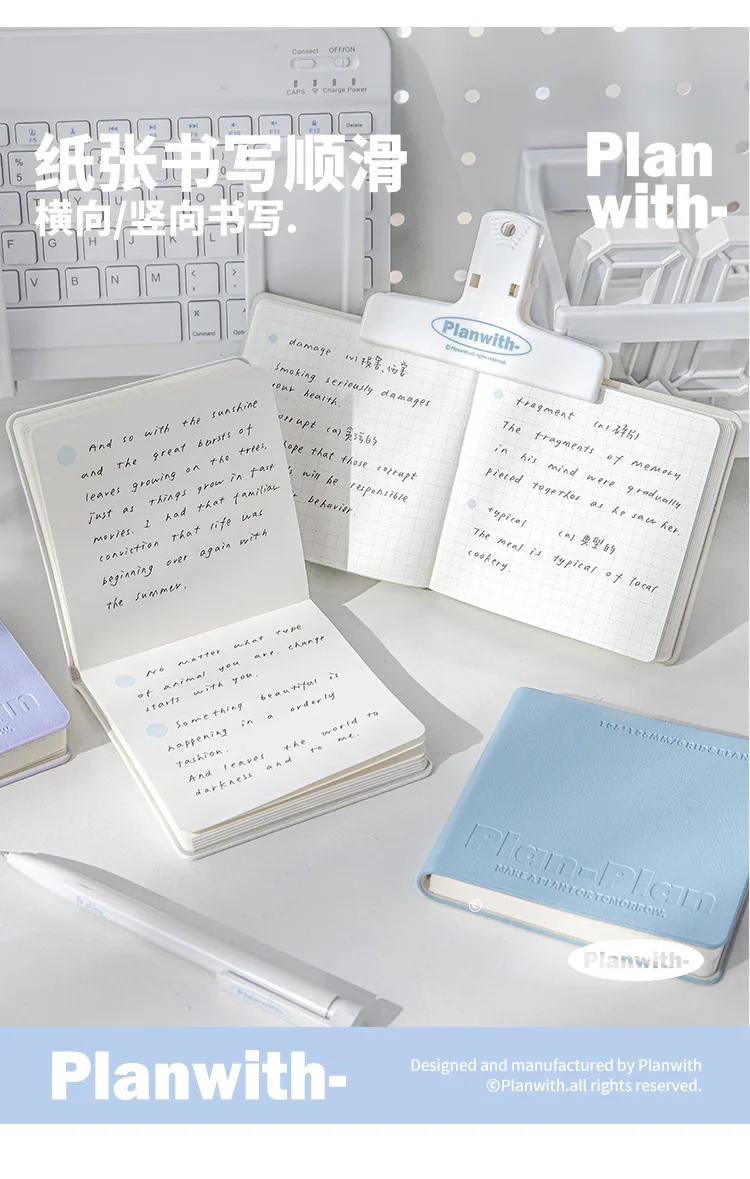 Connect OFF/ON
CAPS Charge Power
F5 F10 F11 F12 Delete
纸张书写顺滑
横向/竖向书写.
Plan
with-
% 5
F G H J K L
V B N M < , > .
Command
Planwith-
©Planwith.all rights reserved.
damage (v) 损害、伤害
Smoking seriously damages
your health.
corrupt (a)
hope that those corrupt
will be responsible
behavior.
fragment (n) 碎片
The fragments of memory
in his mind were gradually
pieced together as he saw her.
typical (a) 典型的
The meal is typical of local
cookery.
And so with the sunshine
and the great bursts of
leaves growing on the trees.
just as things grow in fast
movies. I had that familiar
conviction that life was
beginning over again with
the summer.
No matter what type
of animal you are. change
starts with you.
Something beautiful is
happening in a orderly
fashion.
And leaves the world to
darkness and to me.
Plan-Plan
MAKE A PLAN FOR TOMORROW.
©
Planwith-
Planwith-
Designed and manufactured by Planwith
©Planwith.all rights reserved.